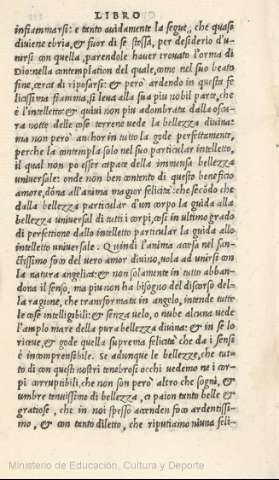 LIBRO
infiammarsi: e tanto auidamente la segue, che quasi
diuiene ebria, & fuor di se stessa, per desiderio d'u-
nirsi con quella, parendole hauer trouato l'orma di
Dio: nella contemplation del quale, come nel suo beato
fine, cerca di riposarsi: & però ardendo in questa fe
licissima fiamma, si leua alla sua piu nobil parte, che
è l'intelletto: & quiui non piu adombrata dalla oscu
ra notte delle cose terrene uede la bellezza diuina:
ma non però anchor in tutto la gode perfettamente,
perche la contempla solo nel suo particular intelletto,
il qual non po esser capace della immensa bellezza
uniuersale: onde non ben contento di questo beneficio
amore, dóna all'anima maggior felicità: che secódo che
dalla bellezza particular d'un corpo la guida alla
bellezza uniuersal di tutti i corpi, cosi in ultimo grado
di perfettione dallo intelletto particular la guida allo
intelletto uniuersale. Quindi l'anima accesa nel san-
ctissimo foco del uero amor diuino, uola ad unirsi con
la natura angelica: & non solamente in tutto abban-
dona il senso, ma piu non ha bisogno del discorso del-
la ragione, che transformata in angelo, intende tutte
le cose intelligibili: & senza uelo, o nube alcuna uede
l'amplo mare della pura bellezza diuina: & in se lo
riceue, & gode quella suprema felicità che da i sensi
è incomprensibile. Se adunque le bellezze, che tut-
to dì con questi nostri tenebrosi occhi uedemo ne i cor-
pi corruptibili, che non son però altro che sogni, &
umbre tenuissime di bellezza, ci paion tanto belle &
gratiose, che in noi spesso accenden foco ardentissi-
mo, & con tanto diletto, che riputiamo niuna feli-
Ministerio de Educación, Cultura y Deporte